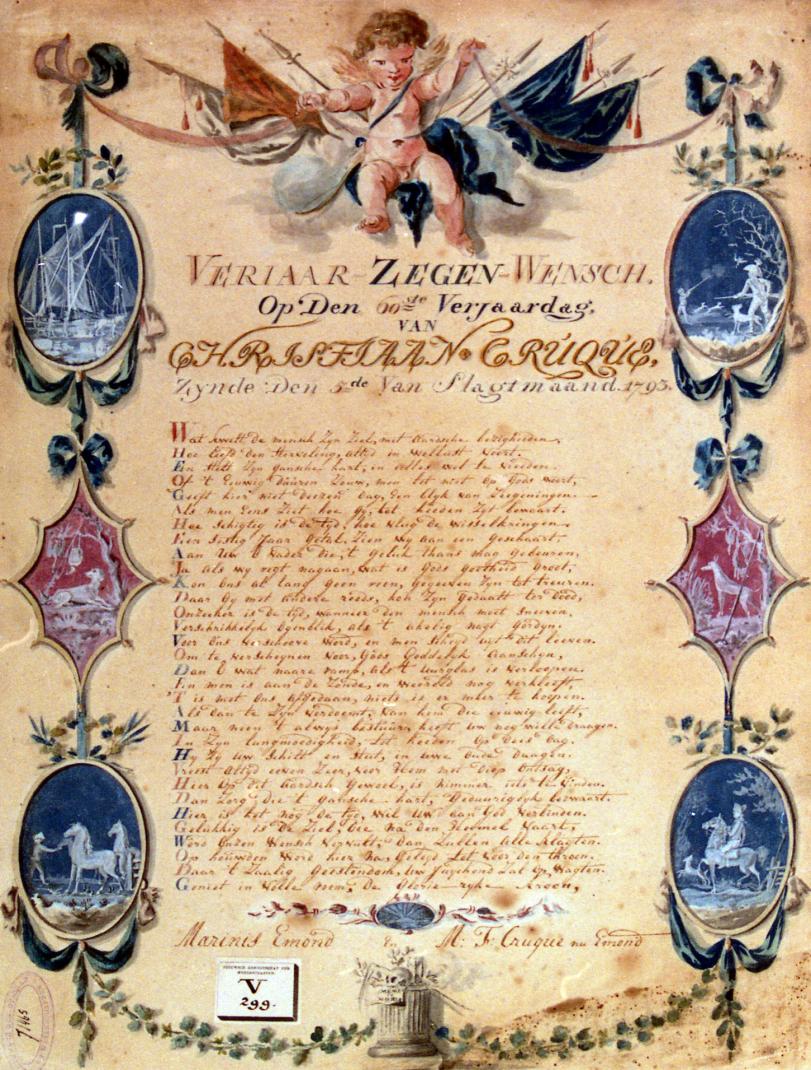 VERIAAR-ZEGEN-WENSCH.
Op Den 60ste Verjaardag,
VAN
CHRISTIAAN CRUQUE,
Zynde Den 5de Van Slagtmaand. 1793.
Wat kwelt de mensch Zyn Ziel, met Aardsche bezigheden
Hoe altyd in Wellust
En stelt Zyn gansche hart, in alles wel te
Of 't Eeuwig duuren Zouw, men let niet op Gods woord,
Geeft hier niet Deezen dag, Een blyk van Zeegeningen.
Als men Eens Ziet hoe gy, tot heeden Zyt bewaart.
Hoe Schigtig is de tyd, hoe vlug de wisselkringen
Een Sestig Jaar Getal, Zien wy aan een Geschaart.
Aan Uw O Vader Die, 't Geluk Thans mag Gebeuren,
Ja als wy regt nagaan, wat is Gods goetheid Groot,
Kon Ons al lang Geen reen, Gegeeven Zyn tot treuren.
Daar Gy met andere reeds, kon Zyn Gedaalt ter dood,
Onzeeker is de tyd, wanneer den mensch moet Sneeven,
Verschrikkelyk Ogenblik, als 't akelig nagt Gordyn.
Voor Ons Verschoove Word, en men Scheyd uyt dit leeven.
Om te Verscheynen Voor, Gods Goddelyk Aanschyn,
Dan O wat naare ramp, als 't uurglas is Verloopen.
En men is aan de Zonde, en Weereld nog verkleeft
'T is met Ons Afgedaan, niets is er meer te hoopen.
Als dan te Zyn Verdoemt, Van hem die eeuwig leeft,
Maar neen 't alwys bestuur, heeft Uw nog wille draagen.
In Zyn langmoedigheid, Tot heeden Op Deis dag.
Hy Zy Uw Schilt en Stut, in uwe Oude Daagen.
Vreest Altyd eeven Zeer, Voor Hem met diep Ontsag,
Hier Op dit Aardsch Gewoel, is nimmer iets te Vinden.
Dan Zorg, die 't Gansche hart, Geduuriglyk bezwaart.
Hier is tot nog de tyd, wil Uw aan God Verbinden.
Gelukkig is de Ziel, die na den Heemel Vaart,
Word Onden Wensch Vervult, Dan Zullen alle klagten.
Op houwden Word hier Na, Geleyd Tot Voor den throon.
Daar 't Zaalig Geestendom, Uw Juychend Zal Op Wagten.
Geniet in Volle nem, De Glorie-ryke kroon,
Marinis Emond En M: F: Cruque nu Emond
V
299.
7465